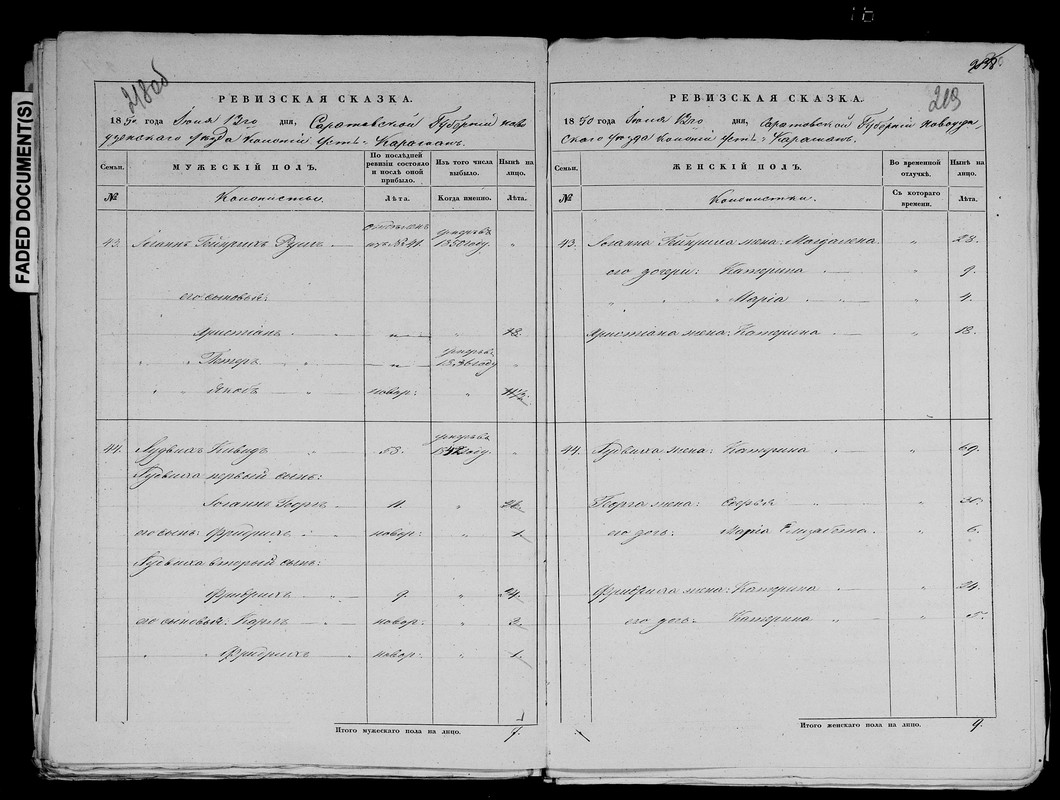 FADED DOCUMENT(S)
218об
РЕВИЗСКАЯ СКАЗКА.
1850 года Іюня 13го дня, Саратовской Губерніи ново
узенскаго уѣзда колоніи Усть-Караманъ.
Семьи. МУЖЕСКІЙ ПОЛЪ. По послѣдней ревизіи состояло и послѣ оной прибыло. Изъ того числа выбыло. Нынѣ на лицо.
№ Колонисты. Лѣта. Когда именно. Лѣта.
43. Іоганъ Гейнрихъ — изъ № 41. умеръ въ 1850 году. „
его сыновья:
Христіанъ — „ — „ 18.
„ Петеръ — „ — умеръ въ 1836 году „
„ Якобъ — новор: „
44. Лудвихъ 58. умеръ въ году. „
Лудвиха первый сынъ:
Іоганъ Георгъ — 11. „
его сынъ: Фридрихъ новор: „ 1.
Лудвиха вторый сынъ:
Фридрихъ 9. „ 24.
его сыновья: Карлъ — новор: „ 2.
„ Фридрихъ новор: „ 1.
Итого мужескаго пола на лицо. 7.
219
РЕВИЗСКАЯ СКАЗКА.
1850 года Іюня 13го дня, Саратовской Губерніи Новоузен
скаго уѣзда колоніи Усть-Караманъ.
Семьи. ЖЕНСКІЙ ПОЛЪ. Во временной отлучкѣ. Нынѣ на лицо.
№ Колонистки. Съ котораго времени. Лѣта.
43. Іоганна Гейнриха жена: Магдалена. „ 28.
его дочери: Катерина — „ 9.
„ „ Марія „ 4.
Христіана жена: Катерина — „ 18.
44. Лудвиха жена: Катерина „ 69.
Георга жена: Софья „ 30.
его дочь: Марія Елизабета. „ 6.
Фридриха жена: Катерина „ 24.
его дочь: Катерина „ 5.
Итого женскаго пола на лицо. 9.